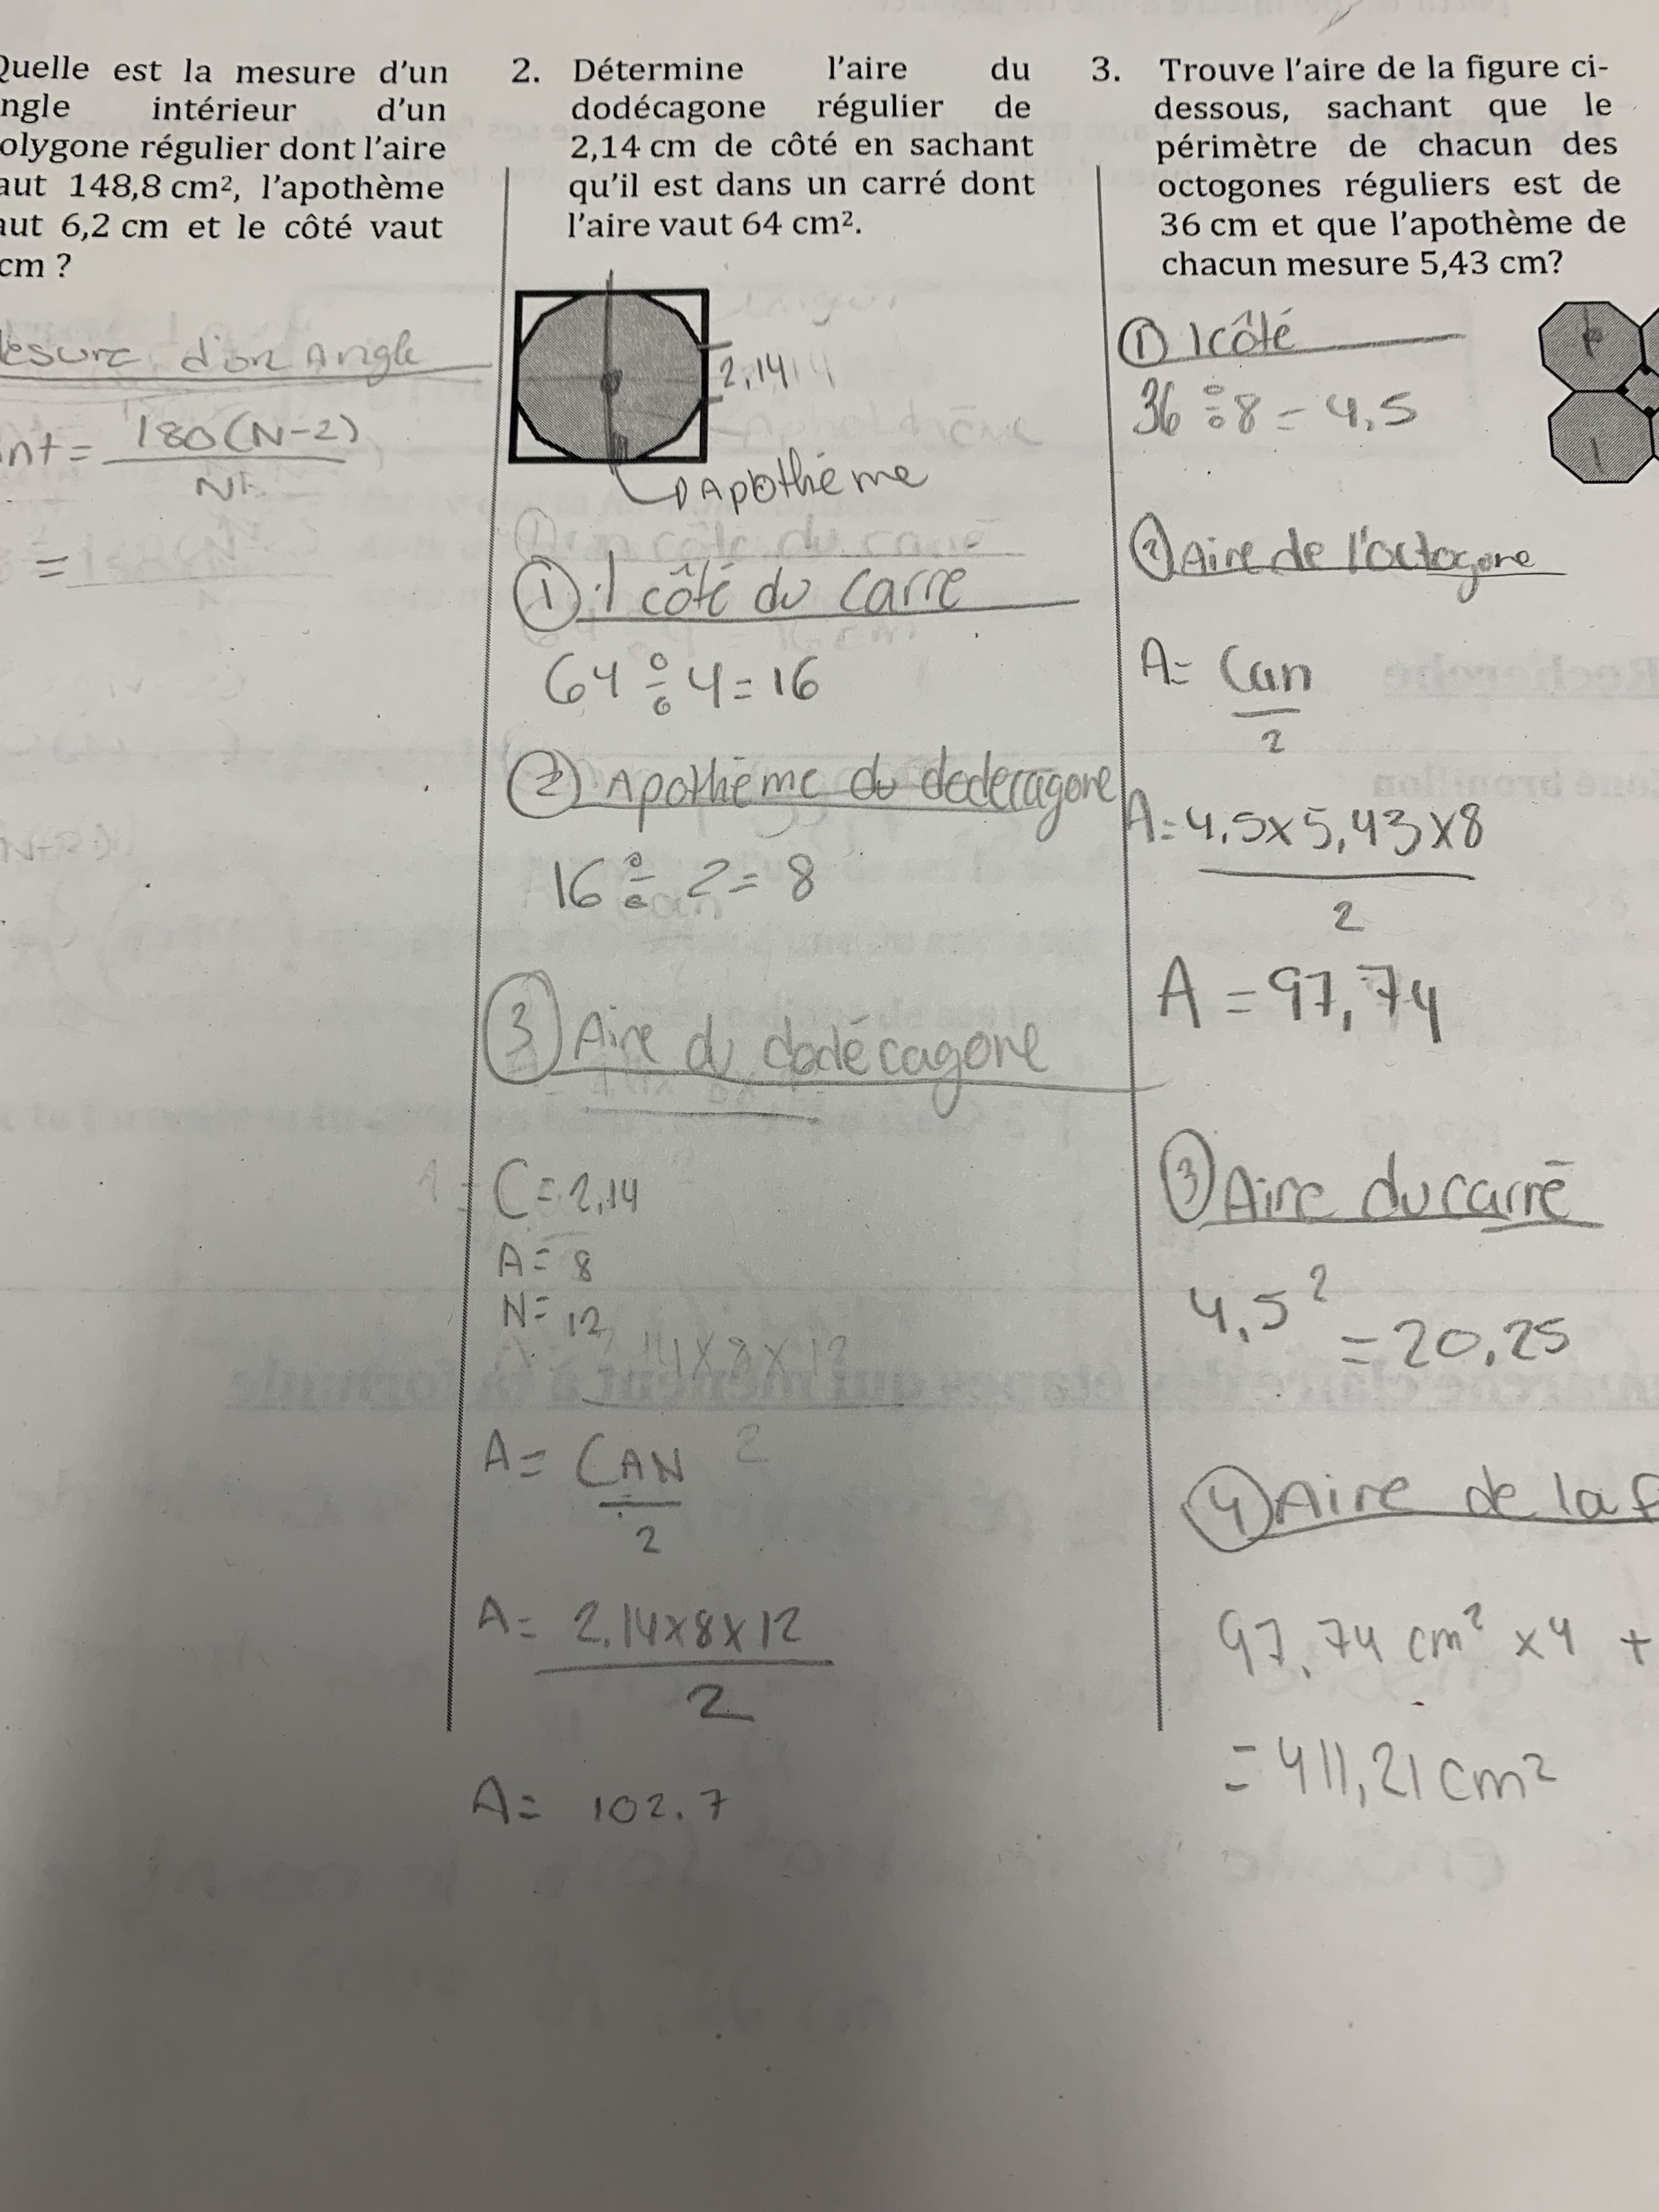 Quelle est la mesure d'un
ngle intérieur d'un
olygone régulier dont l'aire
aut 148,8 cm², l'apothème
aut 6,2 cm et le côté vaut
cm ?
esure d'un Angle
nt = 180(N-2)
N
=
2. Détermine l'aire du
dodécagone régulier de
2,14 cm de côté en sachant
qu'il est dans un carré dont
l'aire vaut 64 cm².
2,14
Apothème
① 1 côté du carré
64 ÷ 4 = 16
② Apothème du dodecagone
16 ÷ 2 = 8
③ Aire du dodécagone
C = 2,14
A = 8
N = 12
14x8x12
2
A = CAN
2
A = 2,14x8x12
2
A = 102.7
3. Trouve l'aire de la figure ci-
dessous, sachant que le
périmètre de chacun des
octogones réguliers est de
36 cm et que l'apothème de
chacun mesure 5,43 cm?
① 1 côté
36 ÷ 8 = 4,5
② Aire de l'octogone
A = Can
2
A = 4,5x5,43x8
2
A = 97,74
③ Aire du carré
4,5²
= 20,25
④ Aire de la f
97,74 cm² x4 +
= 411,21 cm²